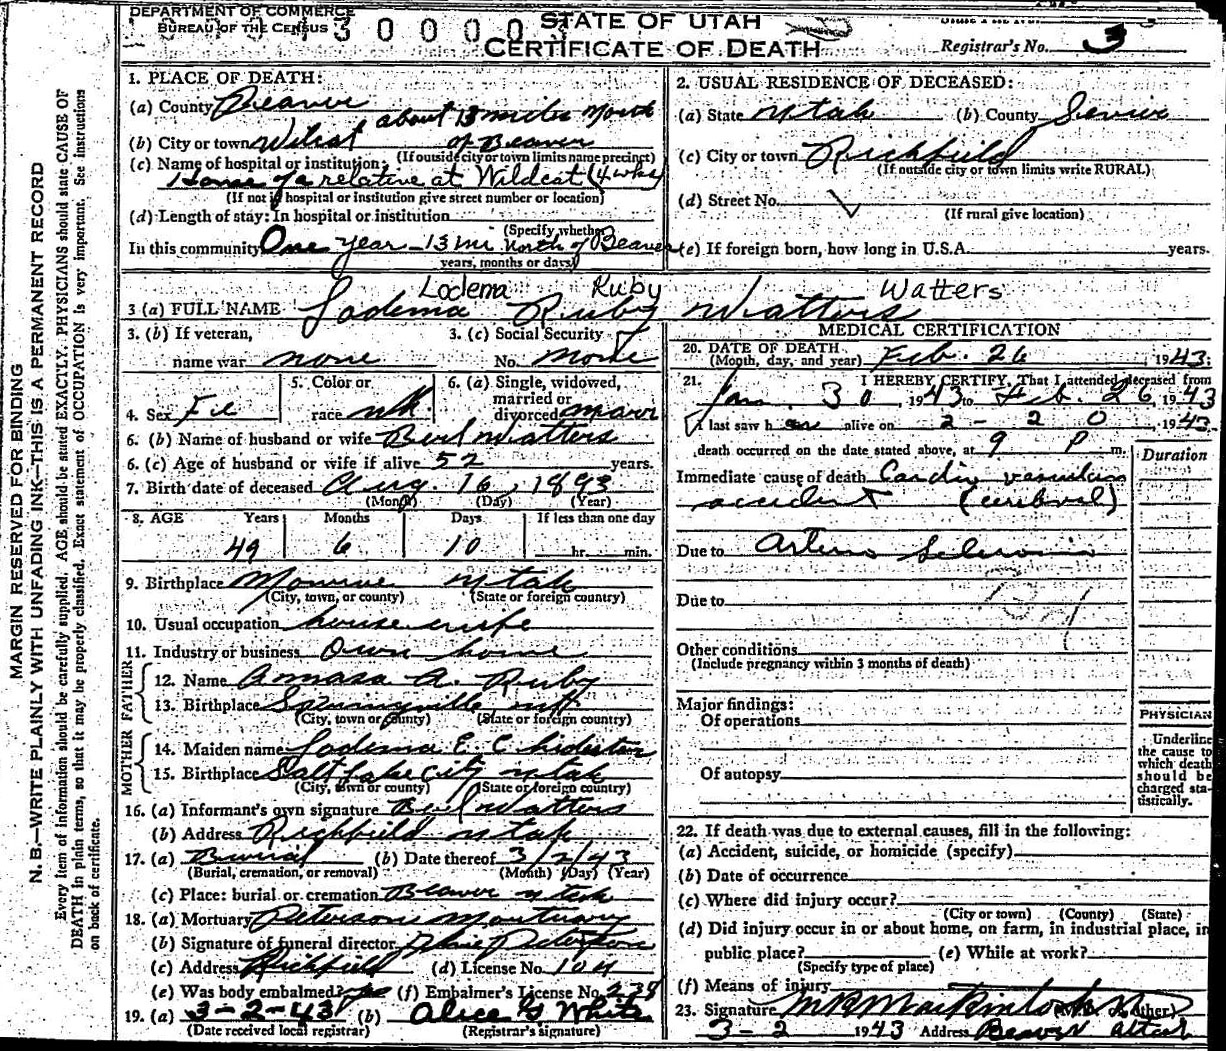 DEPARTMENT OF COMMERCE
BUREAU OF THE CENSUS
30000
STATE OF UTAH
CERTIFICATE OF DEATH
Registrar's No. 3
MARGIN RESERVED FOR BINDING
N. B.—WRITE PLAINLY WITH UNFADING INK—THIS IS A PERMANENT RECORD
Every item of information should be carefully supplied. AGE should be stated EXACTLY. PHYSICIANS should state CAUSE OF
DEATH in plain terms, so that it may be properly classified. Exact statement of OCCUPATION is very important. See instructions
on back of certificate.
1. PLACE OF DEATH:
(a) County Beaver
about 13 miles North
(b) City or town Wilcat of Beaver
(If outside city or town limits name precinct)
(c) Name of hospital or institution:
Home of a relative at Wildcat (4 wks)
(If not in hospital or institution give street number or location)
(d) Length of stay: In hospital or institution
(Specify whether
In this community One year - 13 mi North of Beaver
years, months or days)
2. USUAL RESIDENCE OF DECEASED:
(a) State Utah (b) County Sevier
(c) City or town Richfield
(If outside city or town limits write RURAL)
(d) Street No.
(If rural give location)
(e) If foreign born, how long in U.S.A. years.
Lodema Ruby Watters
3 (a) FULL NAME Lodema Ruby Watters
3. (b) If veteran,
name war none
3. (c) Social Security
No. none
4. Sex Fe
5. Color or
race wh.
6. (a) Single, widowed,
married or
divorced marr
6. (b) Name of husband or wife Burl Watters
6. (c) Age of husband or wife if alive 52 years.
7. Birth date of deceased Aug. 16, 1893
(Month) (Day) (Year)
8. AGE Years Months Days If less than one day
49 6 10 hr. min.
9. Birthplace Monroe Utah
(City, town, or county) (State or foreign country)
10. Usual occupation house wife
11. Industry or business Own home
FATHER
12. Name Amasa A. Ruby
13. Birthplace Springville Ut
(City, town or county) (State or foreign country)
MOTHER
14. Maiden name Lodema E Chidester
15. Birthplace Salt Lake City Utah
(City, town or county) (State or foreign country)
16. (a) Informant's own signature Burl Watters
(b) Address Richfield Utah
17. (a) Burial (b) Date thereof 3/2/43
(Burial, cremation, or removal) (Month) (Day) (Year)
(c) Place: burial or cremation Beaver Utah
18. (a) Mortuary Petersons Mortuary
(b) Signature of funeral director Peterson
(c) Address Richfield (d) License No. 104
(e) Was body embalmed? yes (f) Embalmer's License No. 238
19. (a) 3-2-43 (b) Alice G White
(Date received local registrar) (Registrar's signature)
MEDICAL CERTIFICATION
20. DATE OF DEATH
(Month, day, and year) Feb. 26, 1943
21. I HEREBY CERTIFY, That I attended deceased from
Jan. 30, 1943 to Feb. 26, 1943
I last saw h er alive on 2-20, 1943
death occurred on the date stated above, at 9 P m.
Duration
Immediate cause of death Cardio vascular
accident (cerebral)
Due to Arterio Sclerosis
Due to
Other conditions
(Include pregnancy within 3 months of death)
Major findings:
Of operations
Of autopsy
PHYSICIAN
Underline
the cause to
which death
should be
charged sta-
tistically.
22. If death was due to external causes, fill in the following:
(a) Accident, suicide, or homicide (specify)
(b) Date of occurrence
(c) Where did injury occur?
(City or town) (County) (State)
(d) Did injury occur in or about home, on farm, in industrial place, in
public place? (e) While at work?
(Specify type of place)
(f) Means of injury
23. Signature
3-2 1943 Address Beaver Utah